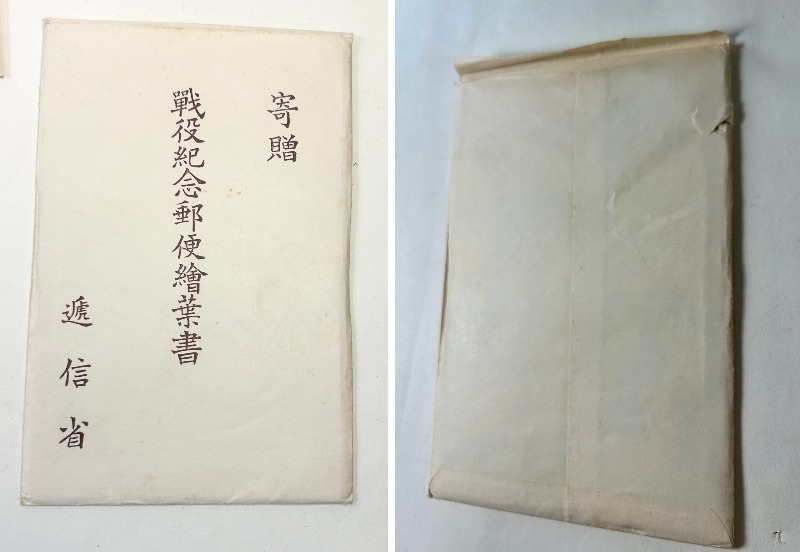 寄贈
戰役紀念郵便繪葉書
遞信省